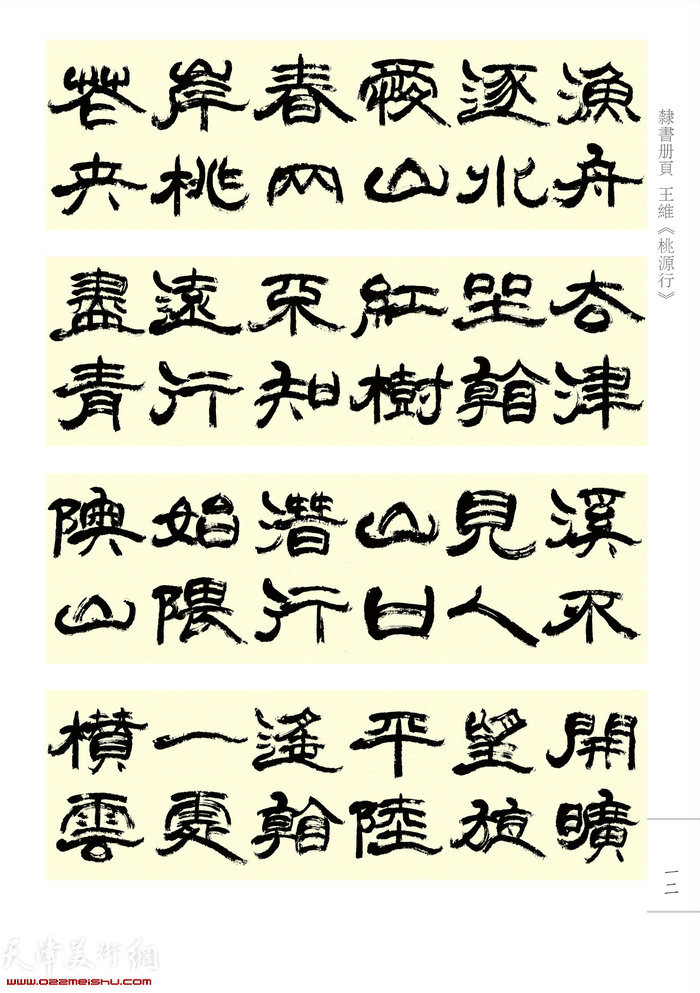 隸書册頁 王維《桃源行》
漁舟
逐水
愛山
春兩
岸桃
花夾
去津
坐看
紅樹
不知
遠行
盡青
溪不
見人
山口
潛行
始隈
隩山
開曠
望旋
平陸
遙看
一處
攢雲
一二
天津美術網
www.022meishu.com